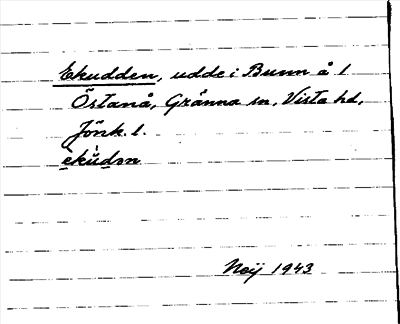 Ekudden, udde i Bunn å 1
Östanå, Gränna sn, Vista hd,
Jönk. l.
ekùdən
Neij 1943